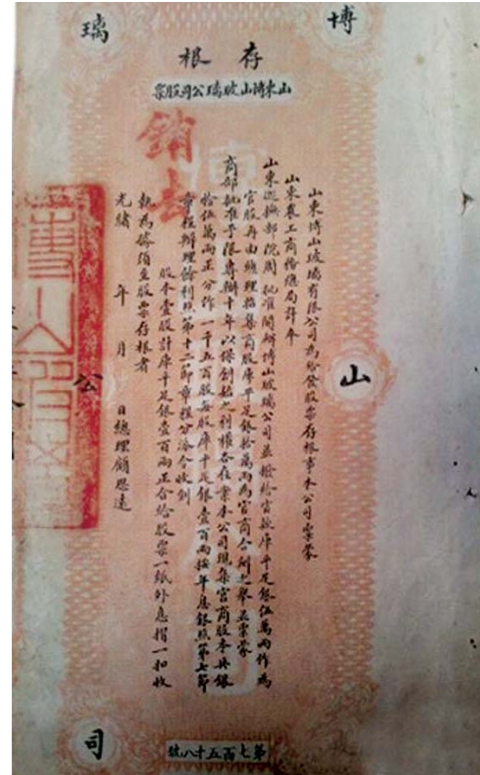 博
山
璃
公
司
存根
山東博山玻璃公司股票
銷去
山東博山玻璃有限公司為給發股票存根事本公司稟蒙
山東農工商務總局詳奉
山東巡撫部院周 批准開辦博山玻璃公司並撥給官款庫平足銀伍萬兩作為
官股再由總理招集商股庫平足銀拾萬兩為官商合辦之舉並稟蒙
商部批准予限專辦十年以保創始之利權合在案本公司現集官商股本共銀
拾伍萬兩正分作一千五百股每股庫平足銀壹百兩按年息銀照第七節
章程辦理餘利照第十二節章程分派合收到
股本壹股計庫平足銀壹百兩正合給股票一紙外息摺一扣收
執為據須至股票存根者
光緒 年 月 日總理顧思遠
第七百五十八號